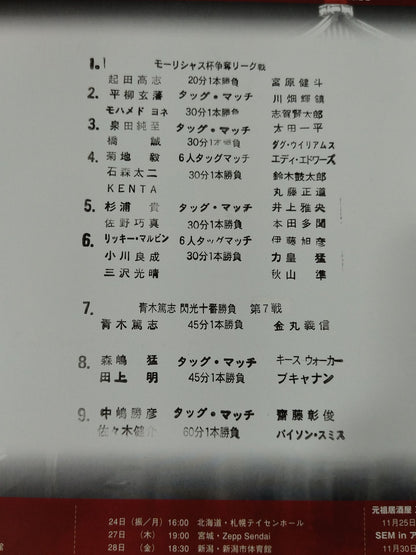 1. モーリシャス杯争奪リーグ戦
起田高志 20分1本勝負 宮原健斗
2. 平柳玄藩 タッグ・マッチ 川畑輝鎮
モハメド ヨネ 30分1本勝負 志賀賢太郎
3. 泉田純至 タッグ・マッチ 太田一平
橋 誠 30分1本勝負 ダグ・ウイリアムス
4. 菊地 毅 6人タッグマッチ エディ・エドワーズ
石森太二 30分1本勝負 鈴木鼓太郎
KENTA 丸藤正道
5. 杉浦 貴 タッグ・マッチ 井上雅央
佐野巧真 30分1本勝負 本田多聞
6. リッキー・マルビン 6人タッグマッチ 伊藤旭彦
小川良成 30分1本勝負 力皇 猛
三沢光晴 秋山 準
7. 青木篤志 閃光十番勝負 第7戦
青木篤志 45分1本勝負 金丸義信
8. 森嶋 猛 タッグ・マッチ キース ウォーカー
田上 明 45分1本勝負 ブキャナン
9. 中嶋勝彦 タッグ・マッチ 齋藤彰俊
佐々木健介 60分1本勝負 バイソン・スミス
24日(振/月) 16:00 北海道・札幌テイセンホール
27日(木) 19:00 宮城・Zepp Sendai
28日(金) 18:30 新潟・新潟市体育館
元祖居酒屋
11月25日
SEM in ア
11月30日